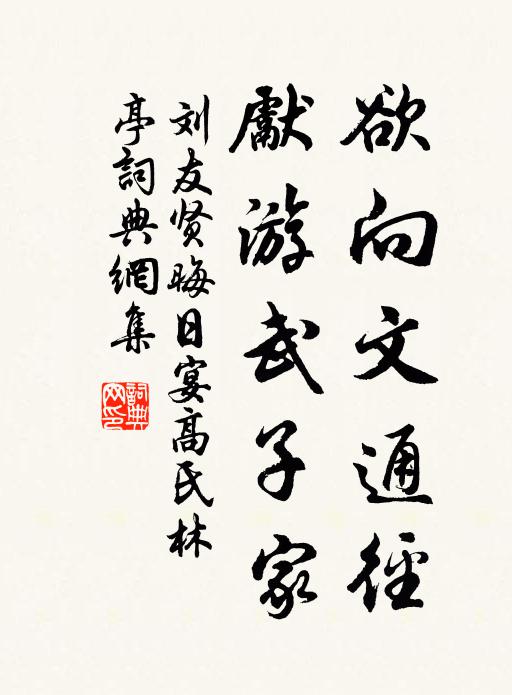 欲向文通徑
獻游武子家
刘友贤晦日宴高氏林
亭詞典網集
詞典网印